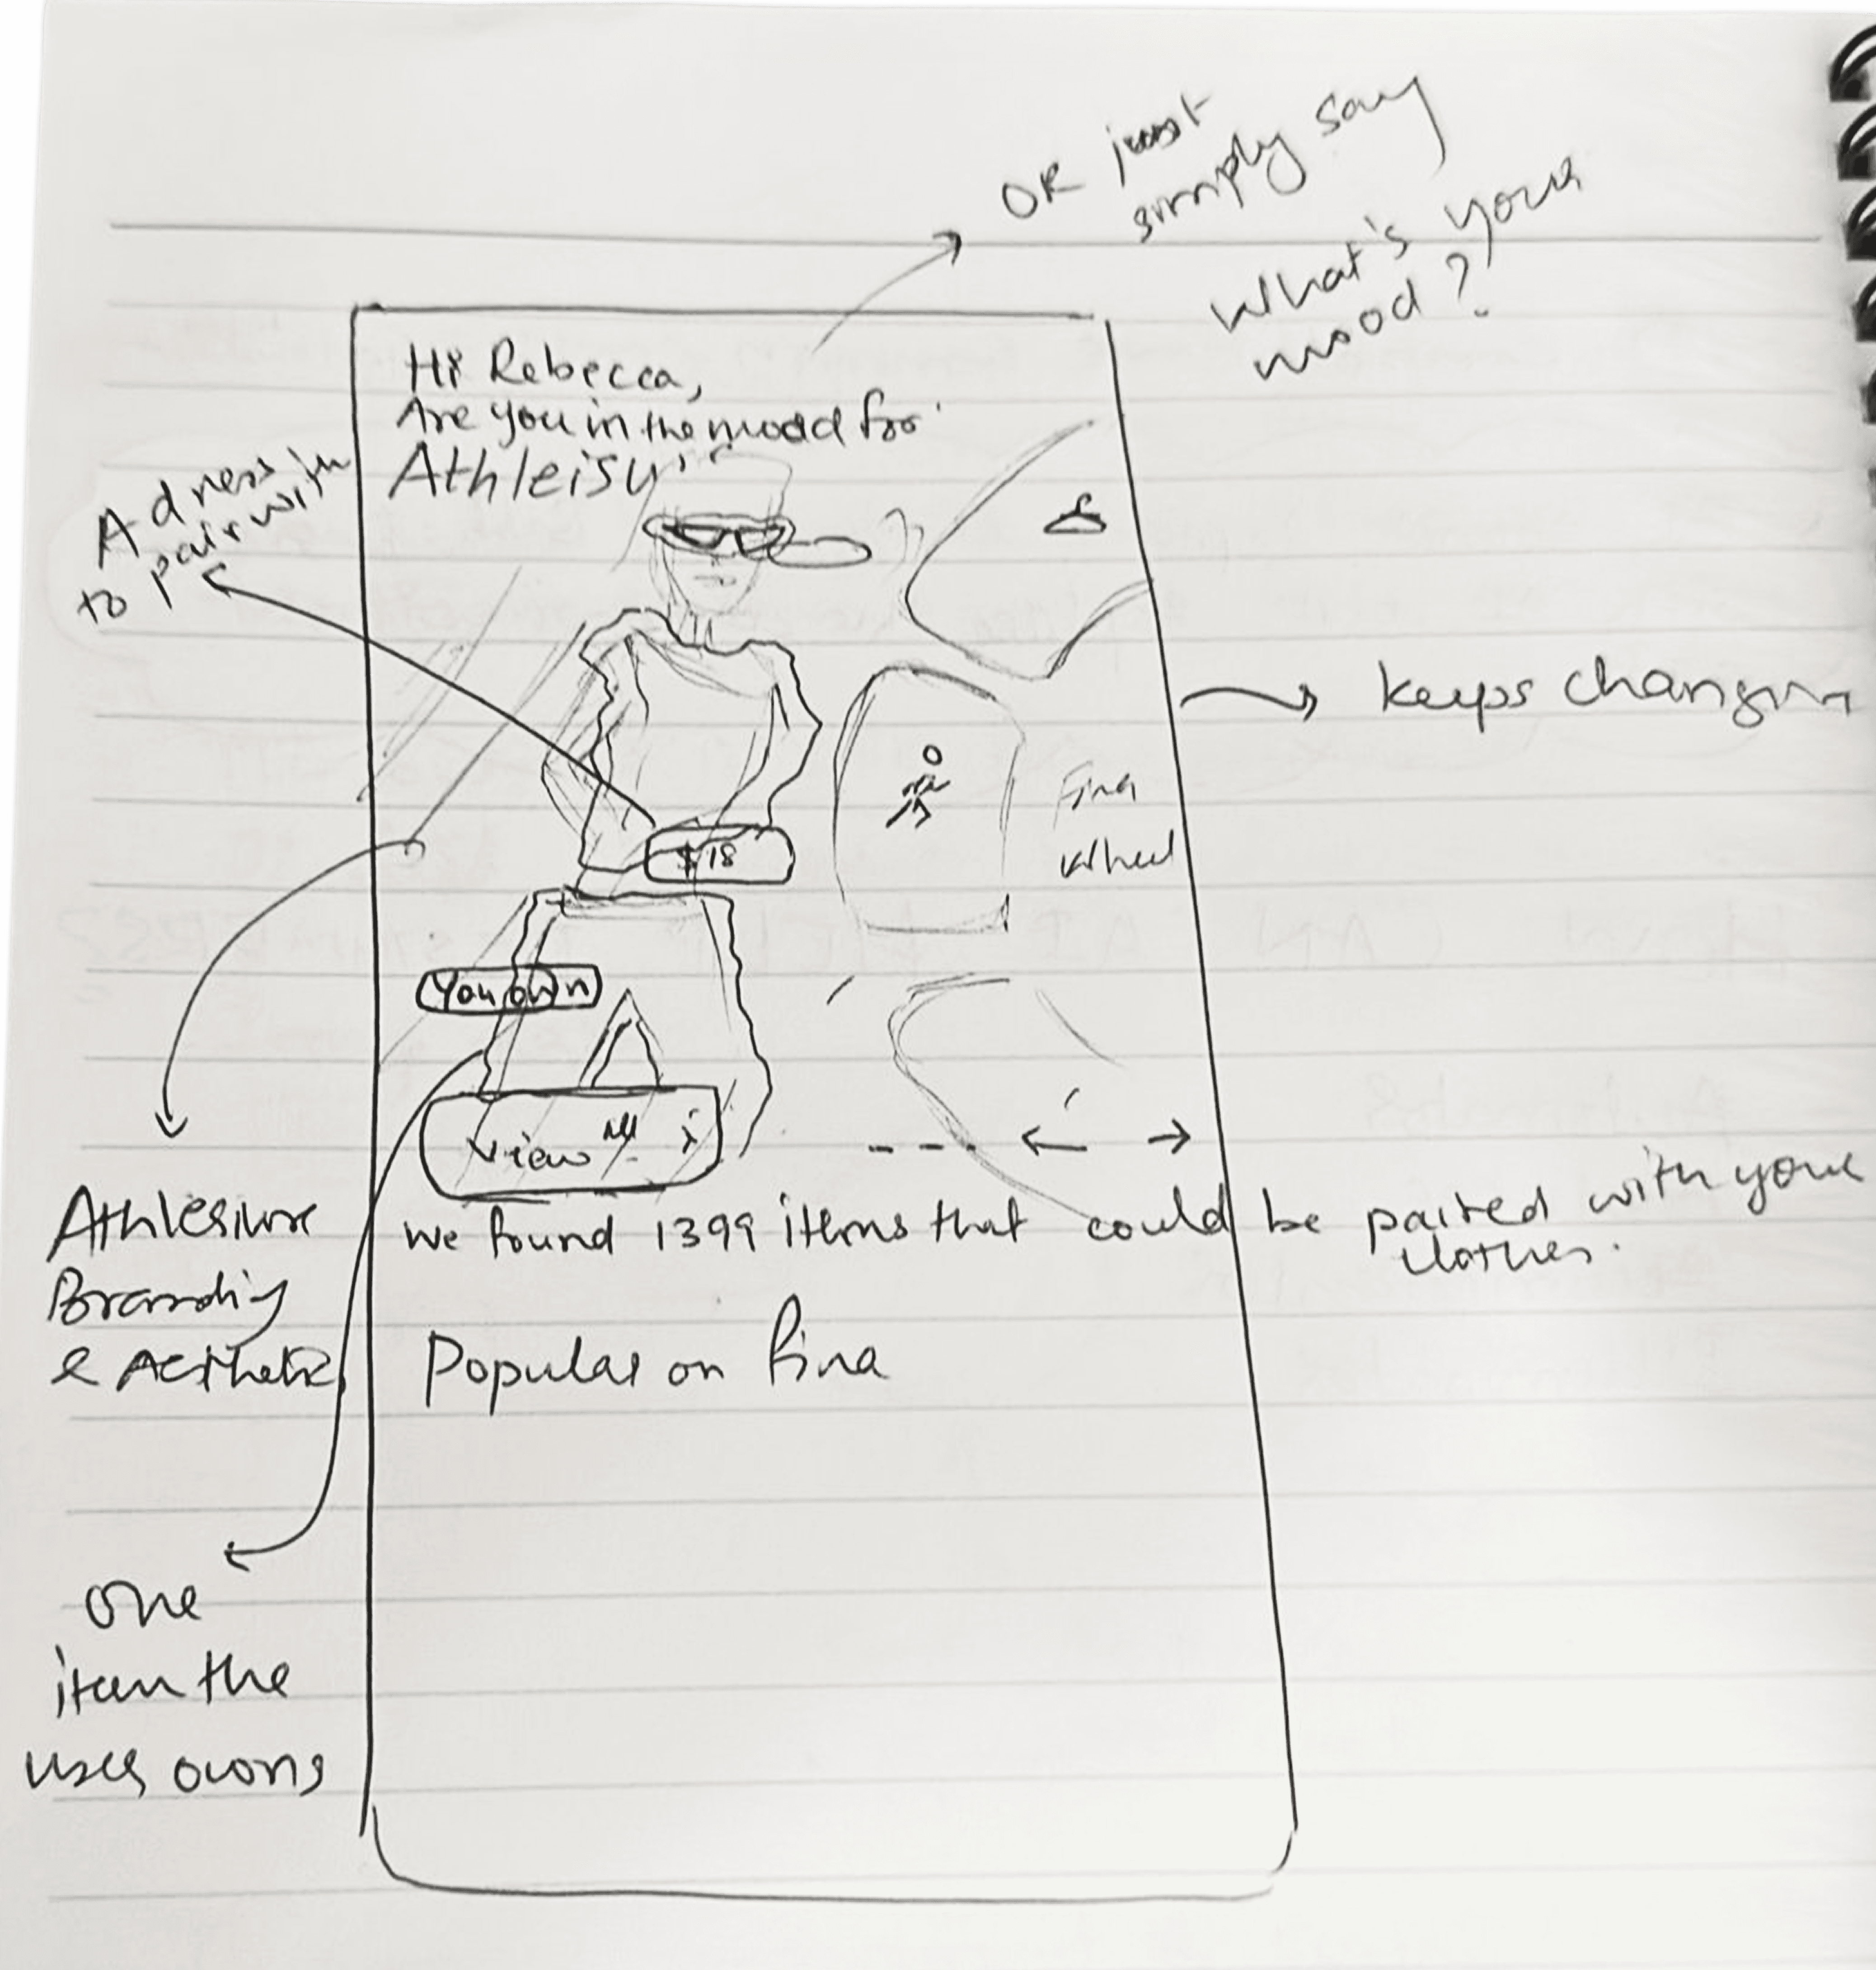 OR just
simply say
What's your
mood?
Hi Rebecca,
Are you in the mood for
Athleisu
A dress
to pair with
keeps changin
Fina
Wheel
$18
You own
View All >
We found 1399 items that could be paired with your
clothes.
Athlesiure
Branding
& Aesthetic
Popular on Fina
One
item the
user owns